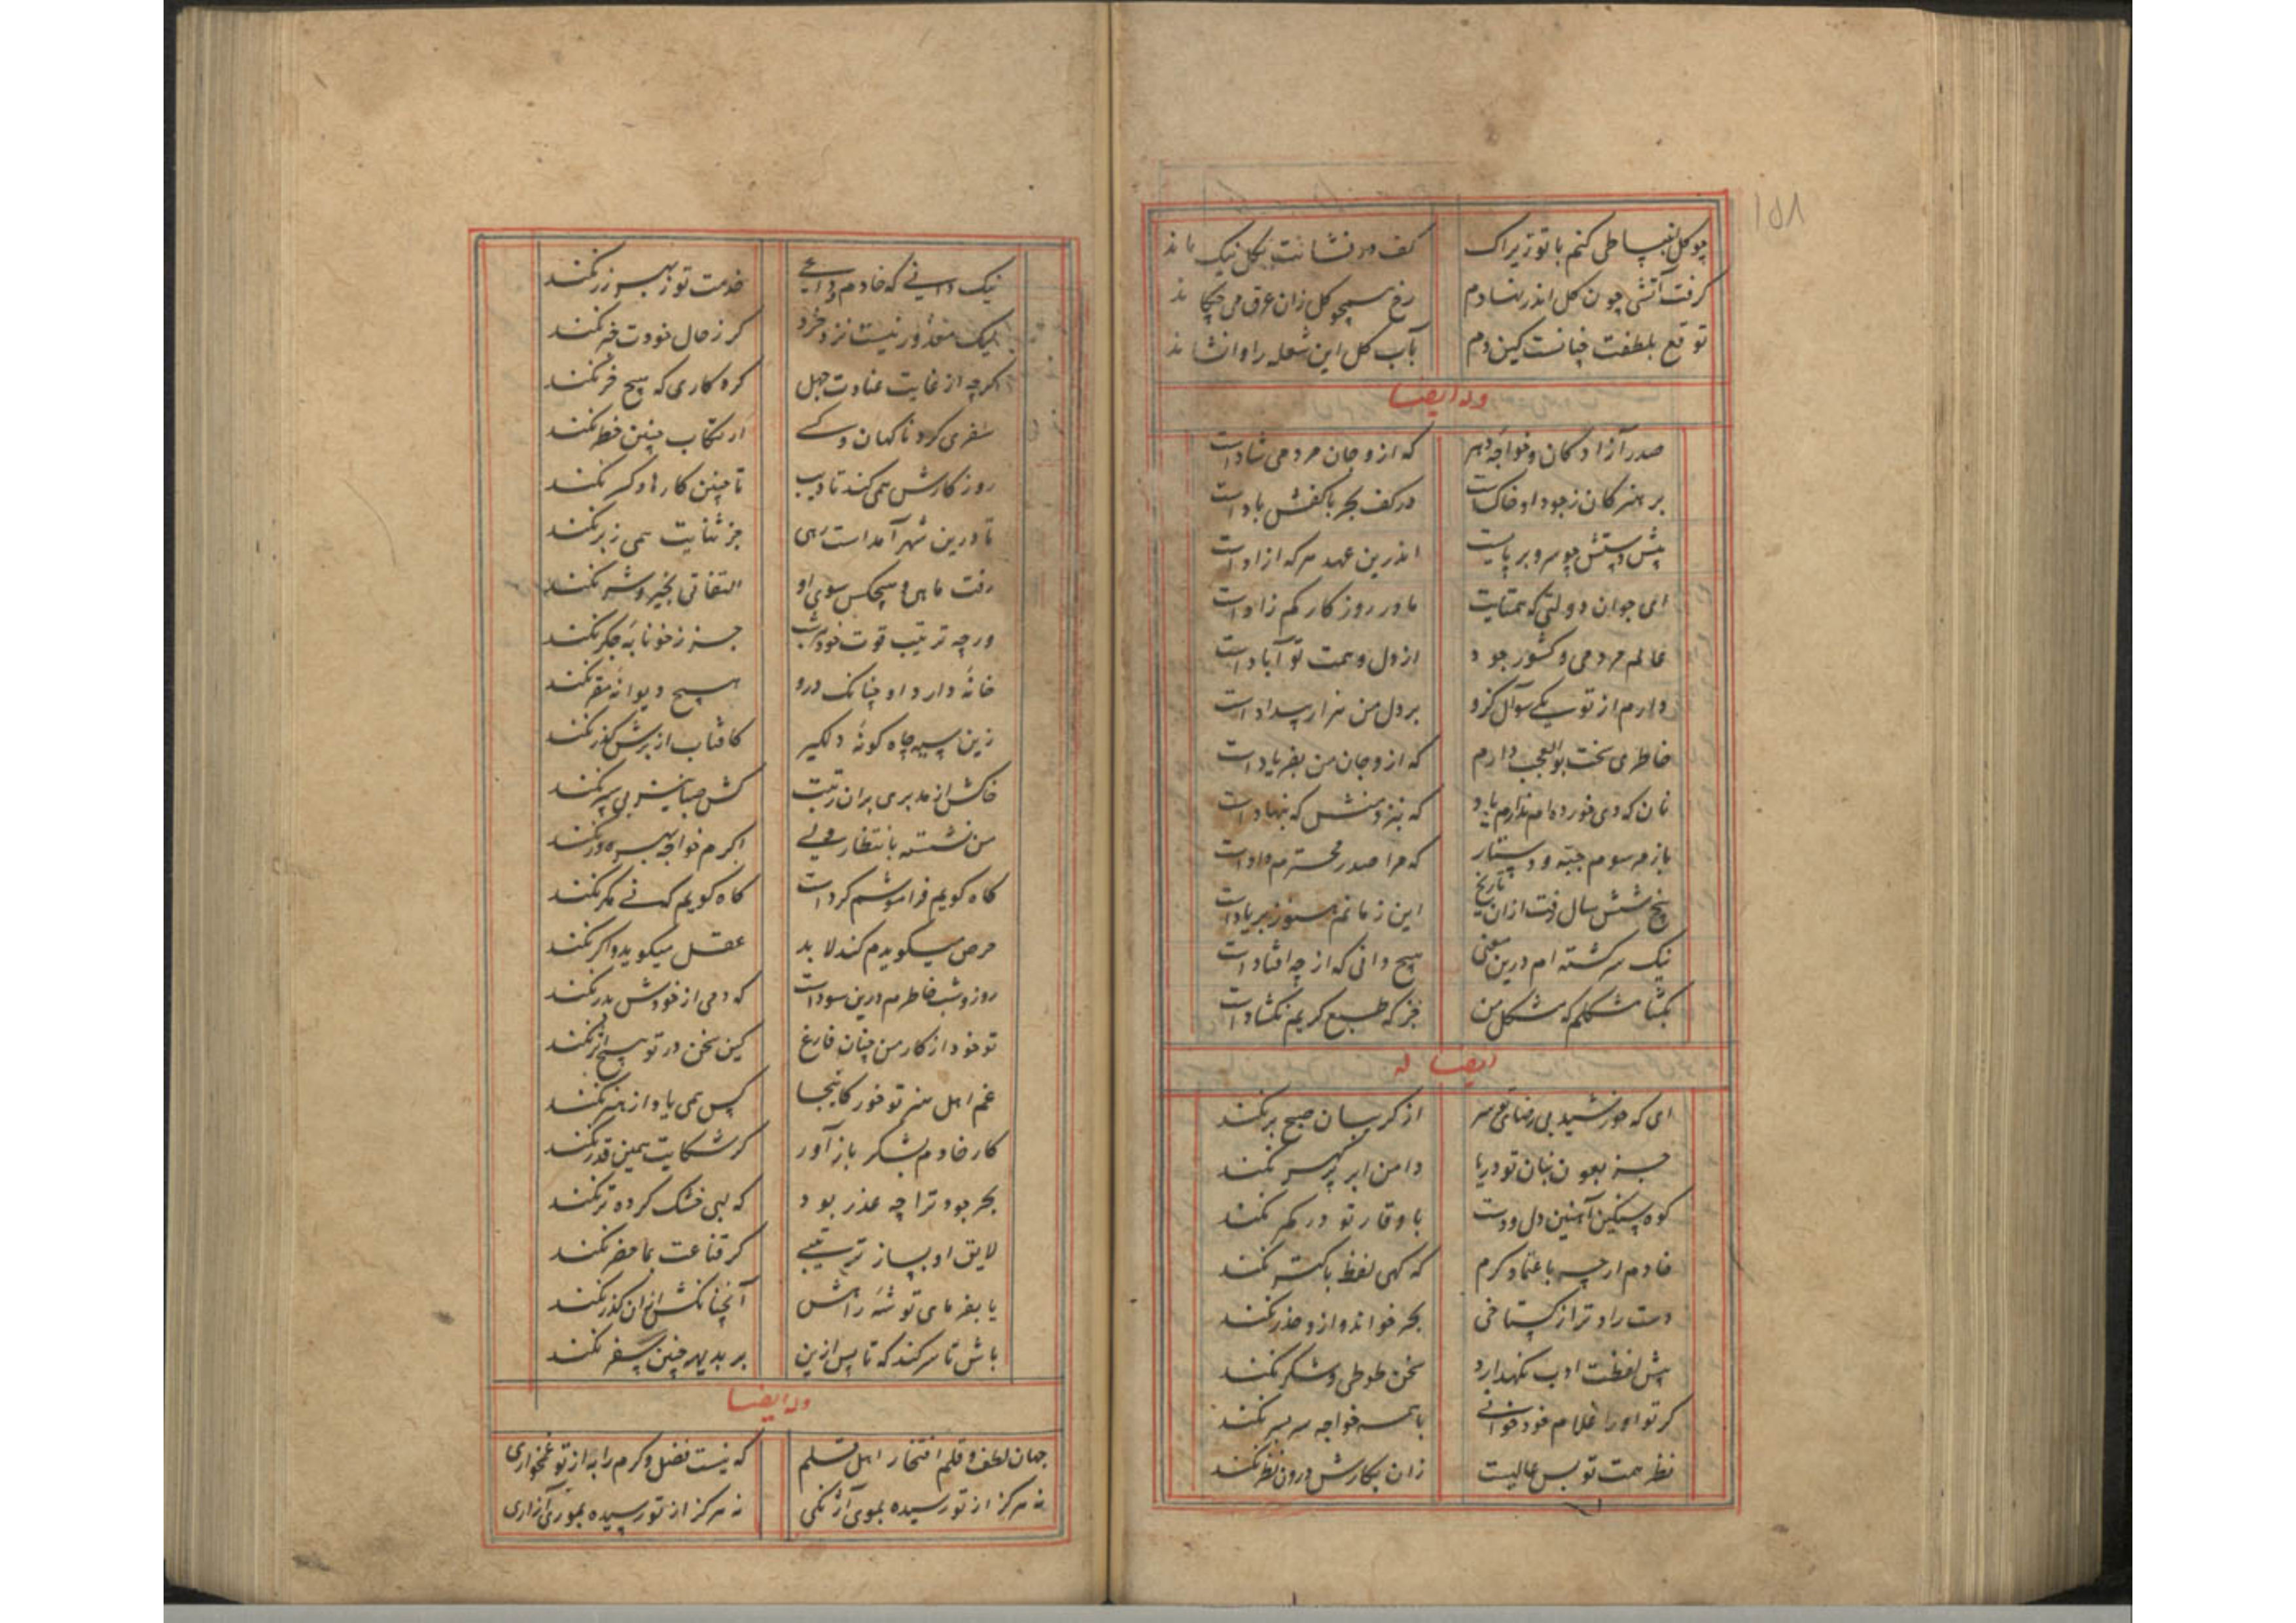 ۱۵۸
چو گل انبساطی کنم با تو زیراک کف درفشانت بگل نیک ماند
گرفت آتشی چون گل اندر نهادم رخ همچو گل زان عرق می چکاند
توقع بلطفت چنانست کین دم بآب گل این شعله را وانشاند
وله ایضا
صدر آزادگان و خواجه دهر که ازو جان مردمی شادست
بر هنر کان ز جود او خاکست در کف بحر با کفش بادست
پیش دستش چو سرو بر پایست اندرین عهد هرکه ازادست
ای جوان دولتی که همتایت مادر روزگار کم زادست
عالم مردمی و کشور جود از دل و همت تو آبادست
دارم از تو یکی سوآل کزو بر دل من هزار بیدادست
خاطری سخت بوالعجب دارم که ازو جان من بفریادست
نان که دی خورده ام ندارم یاد که بنزد منش که بنهادست
باز مرسوم جبّه و دستار که مرا صدر محترم دادست
پنج شش سال رفت ازان تاریخ این زمانم هنوز بر یادست
نیک سرگشته ام درین معنی هیچ دانی که از چه افتادست
بگشا مشکلم که مشکل من جز که طبع کریم نگشادست
ایضا له
ای که خورشید بی رضای تو سر از گریبان صبح بر نکند
جز بعون بنان تو دریا دامن ابر پر گهر نکند
کوه سنگین آهنین دل و دست با وقار تو در کمر نکند
خادم ارچه باعتماد کرم که گهی لفظ باکتر نکند
دست راد ترا ز گستاخی بحر خواند و ازو حذر نکند
پیش لفظت ادب نگهدارد سخن طوطی و شکر نکند
گر تو او را غلام خود خوانی با همه خواجه سر بسر نکند
نظر همت تو بس عالیست زان بکارش درون نظر نکند
نیک دانی که خادم داعی خدمت تو ز بهر زر نکند
لیک معذور نیست نزد خرد گر ز حال خودت خبر نکند
اگرچه از غایت عنادت جهل کرد کاری که هیچ خر نکند
سفری کرد ناگهان و کسی ارتکاب چنین خطر نکند
روزگارش همی کند تادیب تا چنین کارها دگر نکند
تا درین شهر آمداست رهی جز ثنایت همی ز بر نکند
رفت ماهی و هیچکس سوی او التفاتی بخیر و شر نکند
ورچه ترتیب قوت خود هر شب جز ز خونابهٔ جگر نکند
خانهٔ دارد او چنانک درو هیچ دیوانه مقر نکند
زین سیه چاه گونهٔ دلگیر کافتاب از برش گذر نکند
خاکش از مدبری بران رتبت کش صبا نیز پی سپر نکند
من نشسته بانتظار ولی کرم خواجه بهره ور نکند
گاه گویم فراموشم کردست گاه گویم که نی مگر نکند
حرص میگویدم کند لابد عقل میگوید و اگر نکند
روز و شب خاطرم درین سوداست که دمی از خودش بدر نکند
تو خود از کار من چنان فارغ کین سخن در تو هیچ اثر نکند
غم اهل هنر تو خور کاینجا کس همی یاد از هنر نکند
کار خادم بشکر باز آور گر شکایت همین قدر نکند
بحر جود ترا چه عذر بود که لبی خشک کرده تر نکند
لایق او بساز ترتیبی گر قناعت بما حضر نکند
یا بفرمای توشهٔ راهش آنچنانکش ازان گذر نکند
باش تا سر کند که تا پس ازین بر بدیهه چنین سفر نکند
وله ایضا
جهان لطف و قلم افتخار اهل قلم که نیست فضل و کرم را به از تو غمخواری
نه هرگز از تو رسیده بموی آژنگی نه هرگز از تو رسیده بموری آزاری